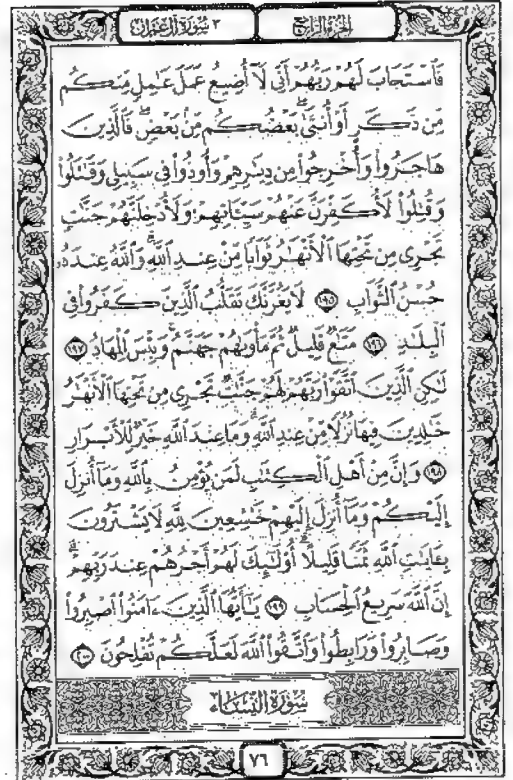 الجزء الرابع
٣ سورة آل عمران
فَٱسْتَجَابَ لَهُمْ رَبُّهُمْ أَنِّى لَآ أُضِيعُ عَمَلَ عَٰمِلٍ مِّنكُم
مِّن ذَكَرٍ أَوْ أُنثَىٰۖ بَعْضُكُم مِّنۢ بَعْضٍۖ فَٱلَّذِينَ
هَاجَرُوا۟ وَأُخْرِجُوا۟ مِن دِيَٰرِهِمْ وَأُوذُوا۟ فِى سَبِيلِى وَقَٰتَلُوا۟
وَقُتِلُوا۟ لَأُكَفِّرَنَّ عَنْهُمْ سَيِّـَٔاتِهِمْ وَلَأُدْخِلَنَّهُمْ جَنَّٰتٍ
تَجْرِى مِن تَحْتِهَا ٱلْأَنْهَٰرُ ثَوَابًا مِّنْ عِندِ ٱللَّهِۗ وَٱللَّهُ عِندَهُۥ
حُسْنُ ٱلثَّوَابِ ١٩٥ لَا يَغُرَّنَّكَ تَقَلُّبُ ٱلَّذِينَ كَفَرُوا۟ فِى
ٱلْبِلَٰدِ ١٩٦ مَتَٰعٌ قَلِيلٌ ثُمَّ مَأْوَىٰهُمْ جَهَنَّمُۚ وَبِئْسَ ٱلْمِهَادُ ١٩٧
لَٰكِنِ ٱلَّذِينَ ٱتَّقَوْا۟ رَبَّهُمْ لَهُمْ جَنَّٰتٌ تَجْرِى مِن تَحْتِهَا ٱلْأَنْهَٰرُ
خَٰلِدِينَ فِيهَا نُزُلًا مِّنْ عِندِ ٱللَّهِۗ وَمَا عِندَ ٱللَّهِ خَيْرٌ لِّلْأَبْرَارِ
١٩٨ وَإِنَّ مِنْ أَهْلِ ٱلْكِتَٰبِ لَمَن يُؤْمِنُ بِٱللَّهِ وَمَآ أُنزِلَ
إِلَيْكُمْ وَمَآ أُنزِلَ إِلَيْهِمْ خَٰشِعِينَ لِلَّهِ لَا يَشْتَرُونَ
بِـَٔايَٰتِ ٱللَّهِ ثَمَنًا قَلِيلًاۗ أُو۟لَٰٓئِكَ لَهُمْ أَجْرُهُمْ عِندَ رَبِّهِمْۗ
إِنَّ ٱللَّهَ سَرِيعُ ٱلْحِسَابِ ١٩٩ يَٰٓأَيُّهَا ٱلَّذِينَ ءَامَنُوا۟ ٱصْبِرُوا۟
وَصَابِرُوا۟ وَرَابِطُوا۟ وَٱتَّقُوا۟ ٱللَّهَ لَعَلَّكُمْ تُفْلِحُونَ ٢٠٠
سورة النساء
٧٦